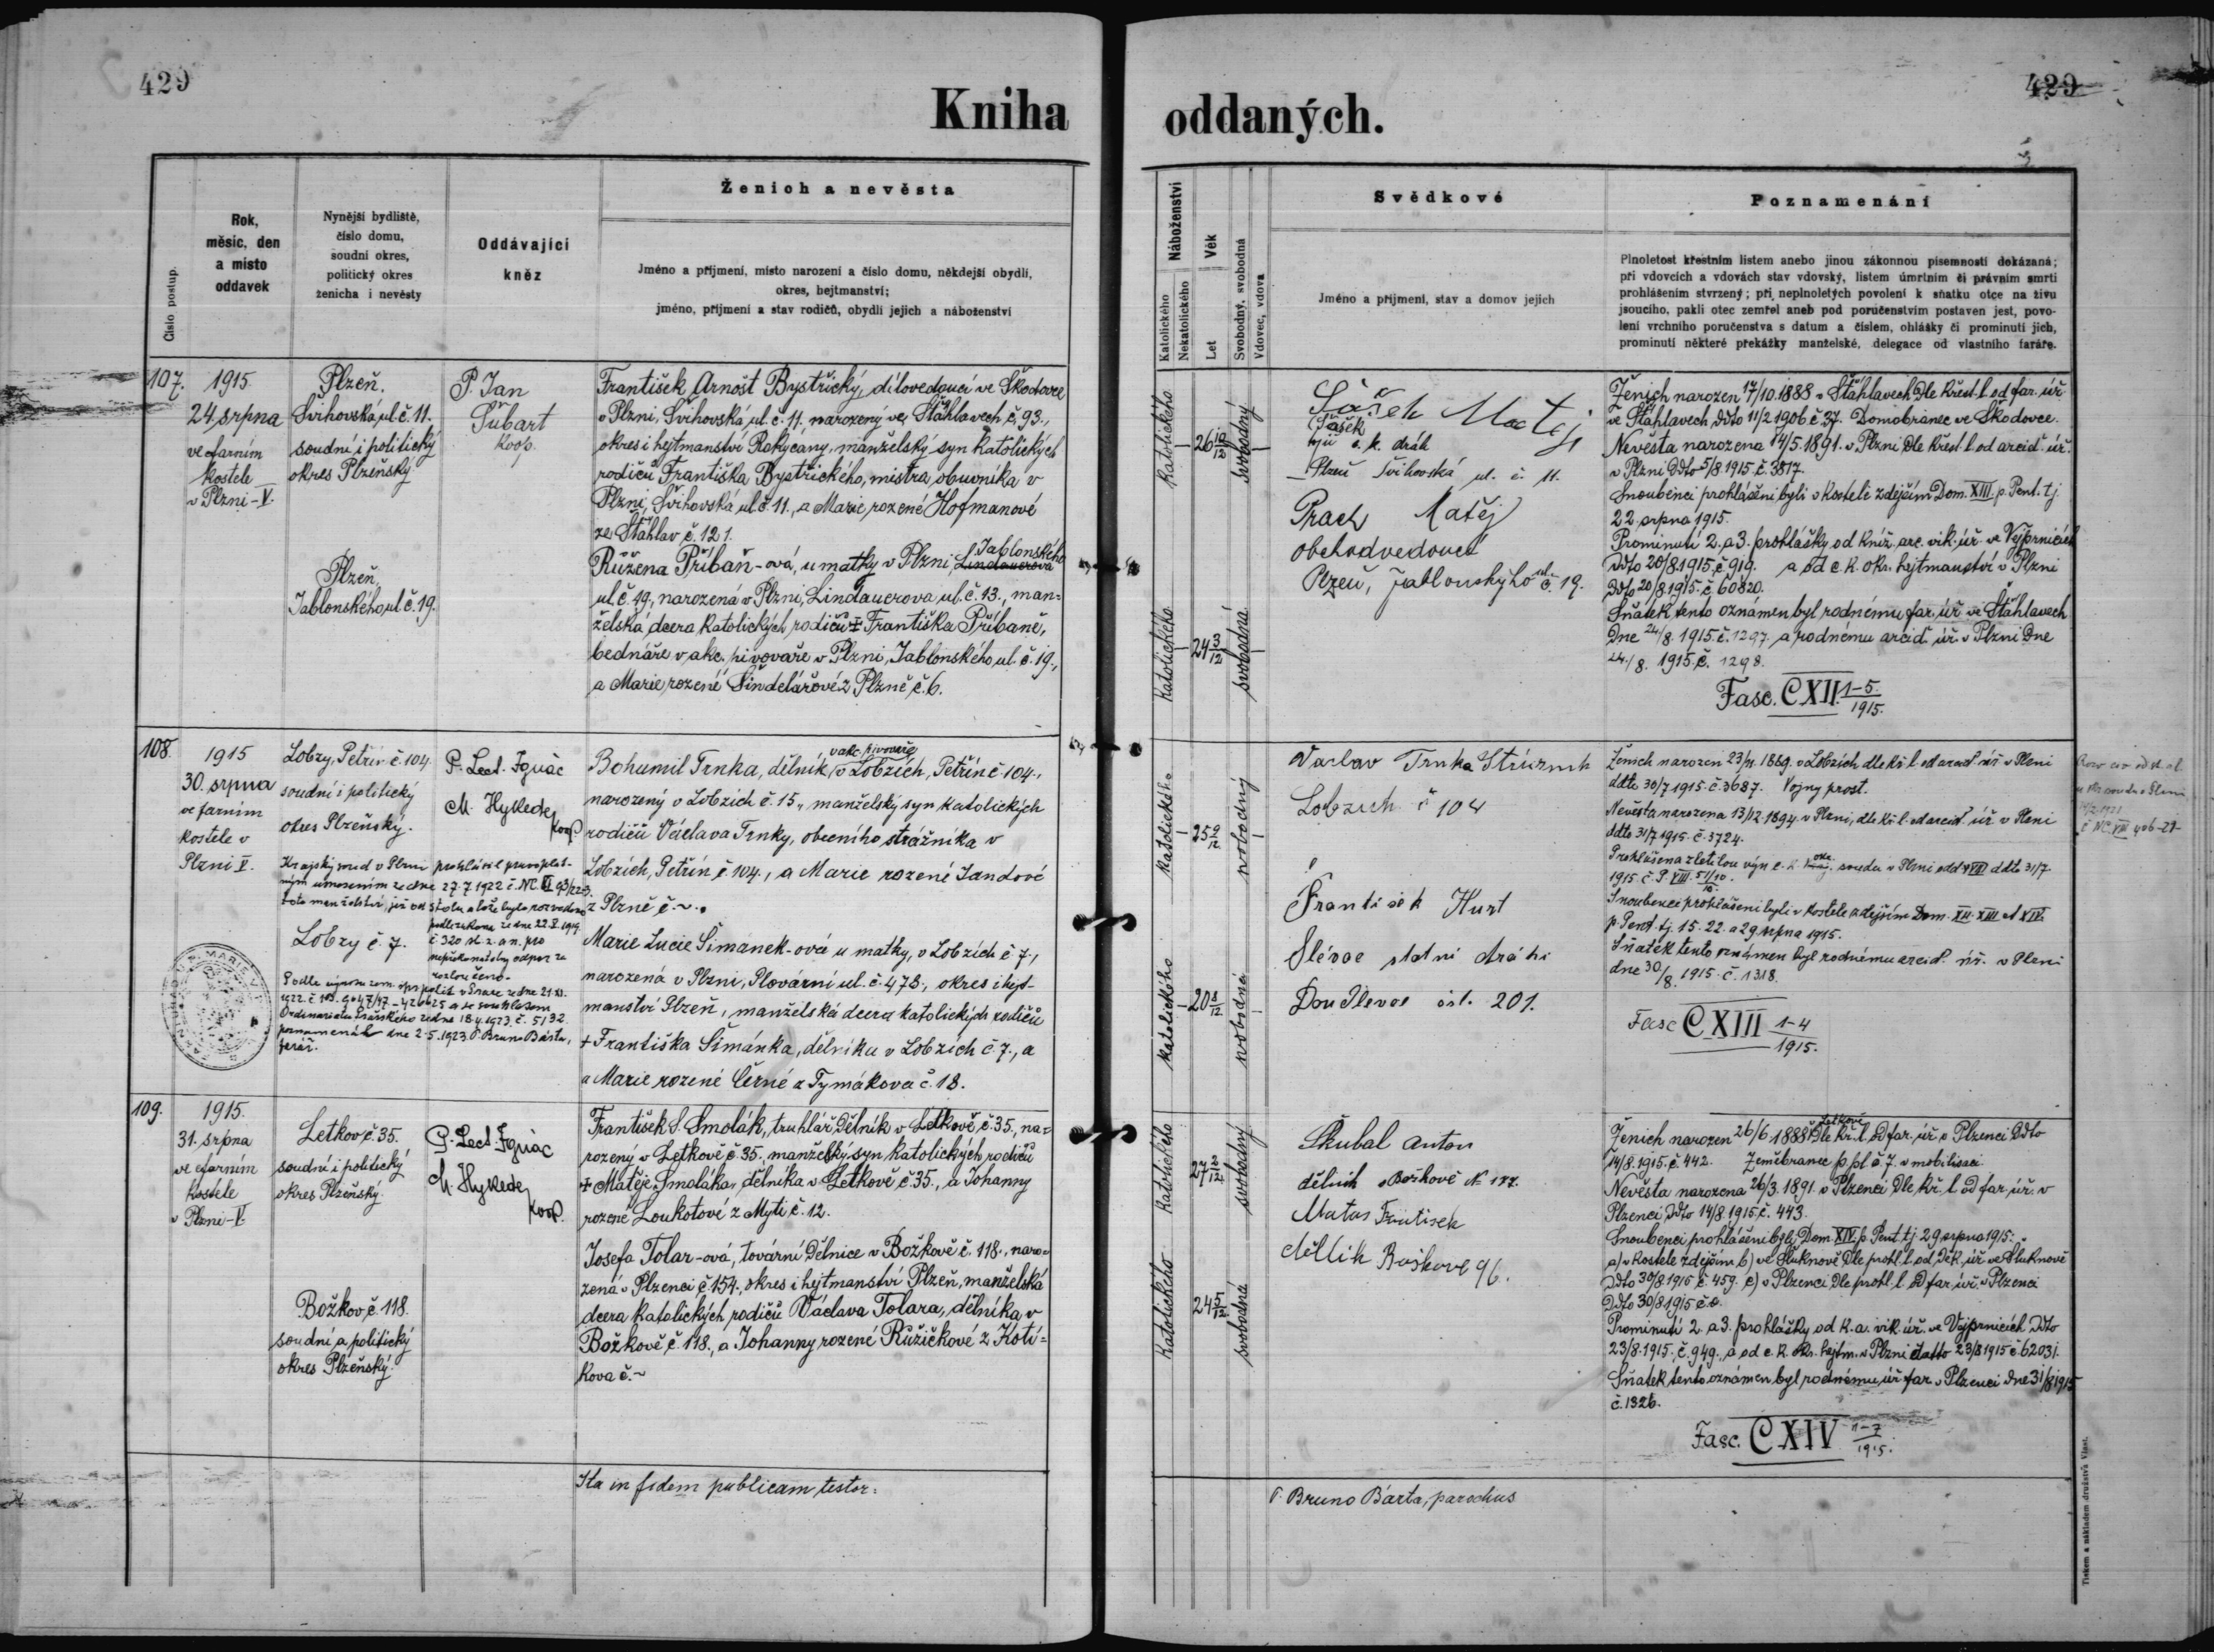 429
Kniha
Číslo postup.
Rok,
měsíc, den
a místo
oddavek
Nynější bydliště,
číslo domu,
soudní okres,
politický okres
ženicha i nevěsty
Oddávající
kněz
Ženich a nevěsta
Jméno a příjmení, místo narození a číslo domu, někdejší obydlí,
okres, hejtmanství;
jméno, příjmení a stav rodičů, obydlí jejich a náboženství
107.
1915
24 srpna
ve farním
kostele
v Plzni-V.
Plzeň.
Švihovská ul. č. 11.
soudní i politický
okres Plzeňský
Plzeň,
Jablonského ul. č. 19.
P. Jan
Šubart
koop.
František Arnošt Bystřický, dílovedoucí ve Škodovce
v Plzni, Švihovská ul. č. 11. narozený ve Šťáhlavech č. 93.,
okres i hejtmanství Rokycany, manželský syn katolických
rodičů Františka Bystřického, mistra obuvníka v
Plzni, Švihovská ul. č. 11., a Marie, rozené Hofmanové
ze Šťáhlav č. 121.
Růžena Přibáň-ová, u matky v Plzni, Lindauerova Jablonského
ul. č. 19., narozená v Plzni, Lindauerova ul. č. 13., man-
želská dcera katolických rodičů + Františka Přibáně,
bednáře v akc. pivovaře v Plzni, Jablonského ul. č. 19.,
a Marie rozené Šindelářové z Plzně č. 6.
108.
1915
30. srpna
ve farním
kostele v
Plzni V.
Lobzy, Petřín č. 104.
soudní i politický
okres Plzeňský.
Krajský soud v Plzni prohlásil pravoplat-
ným usnesením ze dne 27.7.1922 č. NC. VI 93/22-3,
toto manželství, jež od stolu a lože bylo rozvedeno
podle zákona ze dne 22.V.1919.
č 320 sb. z. a n. pro
nepřekonatelný odpor za
rozloučeno.
Lobzy č. 7.
Podle výnosu zem. spr. polit. v Praze ze dne 21.XI.
Ordinariátu Pražského ze dne 18.4.1923. č. 5132.
poznamenal dne 2.5.1923 P. Bruno Bárta,
farář.
P. Lect. Ignác
M. Hyksede
koop.
Bohumil Trnka, dělník v akc. pivovaře v Lobzích, Petřín č. 104.,
narozený v Lobzích č. 15., manželský syn katolických
rodičů Václava Trnky, obecního strážníka v
Lobzích, Petřín č. 104., a Marie rozené Jandové
z Plzně č. ~.
Marie Lucie Šimanek-ová u matky, v Lobzích č. 7.,
narozená v Plzni, Plovární ul. č. 478., okres i hejt-
manství Plzeň, manželská dcera katolických rodičů
+ Františka Šimánka, dělníka v Lobzích č. 7., a
a Marie rozené Černé z Tymákova č. 18.
109.
1915.
31. srpna
ve farním
kostele
v Plzni-V.
Letkov č. 35.
soudní i politický
okres Plzeňský.
Božkov č. 118.
soudní a politický
okres Plzeňský.
P. Lect. Ignác
M. Hyksede
koop.
František S. Smolák, truhlář, dělník v Letkově, č. 35., na-
rozený v Letkově č. 35., manželský syn katolických rodičů
+ Matěje Smoláka, dělníka v Letkově č. 35., a Johanny
rozené Loukotové z Mýti č. 12.
Josefa Tolar-ová, tovární dělnice v Božkově č. 118., naro-
zená v Plzenci č. 154., okres i hejtmanství Plzeň, manželská
dcera katolických rodičů Václava Tolara, dělníka v
Božkově č. 118., a Johanny rozené Růžičkové z Koti-
kova č. ~
Ita in fidem publicam testor:
429
oddaných.
Náboženství
Katolického
Nekatolického
Věk
Let
Svobodný, svobodná
Vdovec, vdova
Svědkové
Jméno a příjmení, stav a domov jejich
Poznamenání
Plnoletost křestním listem anebo jinou zákonnou písemností dokázaná;
při vdovcích a vdovách stav vdovský, listem úmrtním či právním smrti
prohlášením stvrzený; při neplnoletých povolení k sňatku otce na živu
jsoucího, pakli otec zemřel aneb pod poručenstvím postaven jest, povo-
lení vrchního poručenstva s datum a číslem, ohlášky či prominutí jich,
prominutí některé překážky manželské, delegace od vlastního faráře.
katolického
26 10/12
svobodný
katolického
24 3/12
svobodná
Šašek Matěj
(Šašek
c. k. dráh
Plzeň Švihovská ul. č. 11.
Prach Matěj
obchodvedoucí
Plzeň, Jablonskýho ul. č. 19.
Ženich narozen 17/10.1888 v Šťáhlavech dle křest. l. od far. úř.
ve Šťáhlavech, ddto 11/2.1906. č. 37. Domobranec ve Škodovce.
Nevěsta narozena 14/5.1891. v Plzni dle křest. l. od arcid. úř.
v Plzni ddto 5/8.1915. č. 3817.
Snoubenci prohlášeni byli v kostele zdejším Dom. XIII. p. Pent. tj.
22. srpna 1915.
Prominutí 2. a 3. prohlášky od kníž. arc. vik. úř. ve Vejprnicích
ddto 20/8.1915. č. 919. a od c. k. okr. hejtmanství v Plzni
ddto 20/8.1915. č. 60820.
Sňatek tento oznámen byl rodnému far. úř. ve Šťáhlavech
dne 24/8. 1915. č. 1297. a rodnému arcid. úř. v Plzni dne
24./8. 1915. č. 1298.
Fasc. CXII. 1-5/1915.
katolického
25 9/12
svobodný
katolického
20 8/12
svobodná
Vaclav Trnka Strážník
Lobzích č 104
František Hurt
Slévač statní dráhi
Doudlevce čsl. 201.
Ženich narozen 23/11. 1889. v Lobzích dle kř. l. od arcid. úř. v Plzni
ddto 30/7 1915. č. 3687. Vojny prost.
Nevěsta narozena 13/12 1894. v Plzni, dle kř. l. od arcid. úř. v Plzni
ddto 31/7 1915. č. 3724.
Prohlášena zletilou výn. c. k. okr. soudu v Plzni odd. VIII ddto 31/7.
1915. č. P. VIII. 51/10/15.
Snoubenci prohlášeni byli v kostele zdejším Dom. XII. XIII et XIV.
p. Pent. tj. 15. 22. a 29 srpna 1915.
Sňatek tento oznámen byl rodnému arcid. úř. v Plzni
dne 30/8. 1915. č. 1318.
Fasc CXIII 1-4/1915.
č NC. VIII 406-21-
katolického
27 2/12
svobodný
katolického
24 5/12
svobodná
Skubal Anton
dělník v Božkově N 177.
Matas Frantisek
dělník Boškově 96.
Ženich narozen 26/6 1888 v Letkově dle kř. l. od far. úř. v Plzenci ddto
14/8.1915. č. 442. Zeměbranec p. pl. č. 7. v mobilisaci.
Nevěsta narozena 26/3. 1891. v Plzenci dle kř. l. od far. úř. v
Plzenci, ddto 14/8.1915. č. 443.
Snoubenci prohlášeni byli Dom. XIV. p. Pent. tj. 29. srpna 1915:
a) v kostele zdejším b) ve Šluknově dle prohl. l. od děk. úř. ve Šluknově
ddto 30/8.1915 č. 459. c) v Plzenci dle prohl. l. od far. úř. v Plzenci
ddto 30/8 1915 č. o.
Prominutí 2. a 3. prohlášky od k. a. vik. úř. ve Vejprnicích ddto
23/8.1915. č. 949., a od c. k. okr. hejtm. v Plzni datto 23/8 1915 č. 62031.
Sňatek tento oznámen byl rodnému úř. far. v Plzenci dne 31/8 1915
č. 1326.
Fasc. CXIV 1-7/1915.
P. Bruno Bárta, parochus
Tiskem a nákladem družstva Vlast.